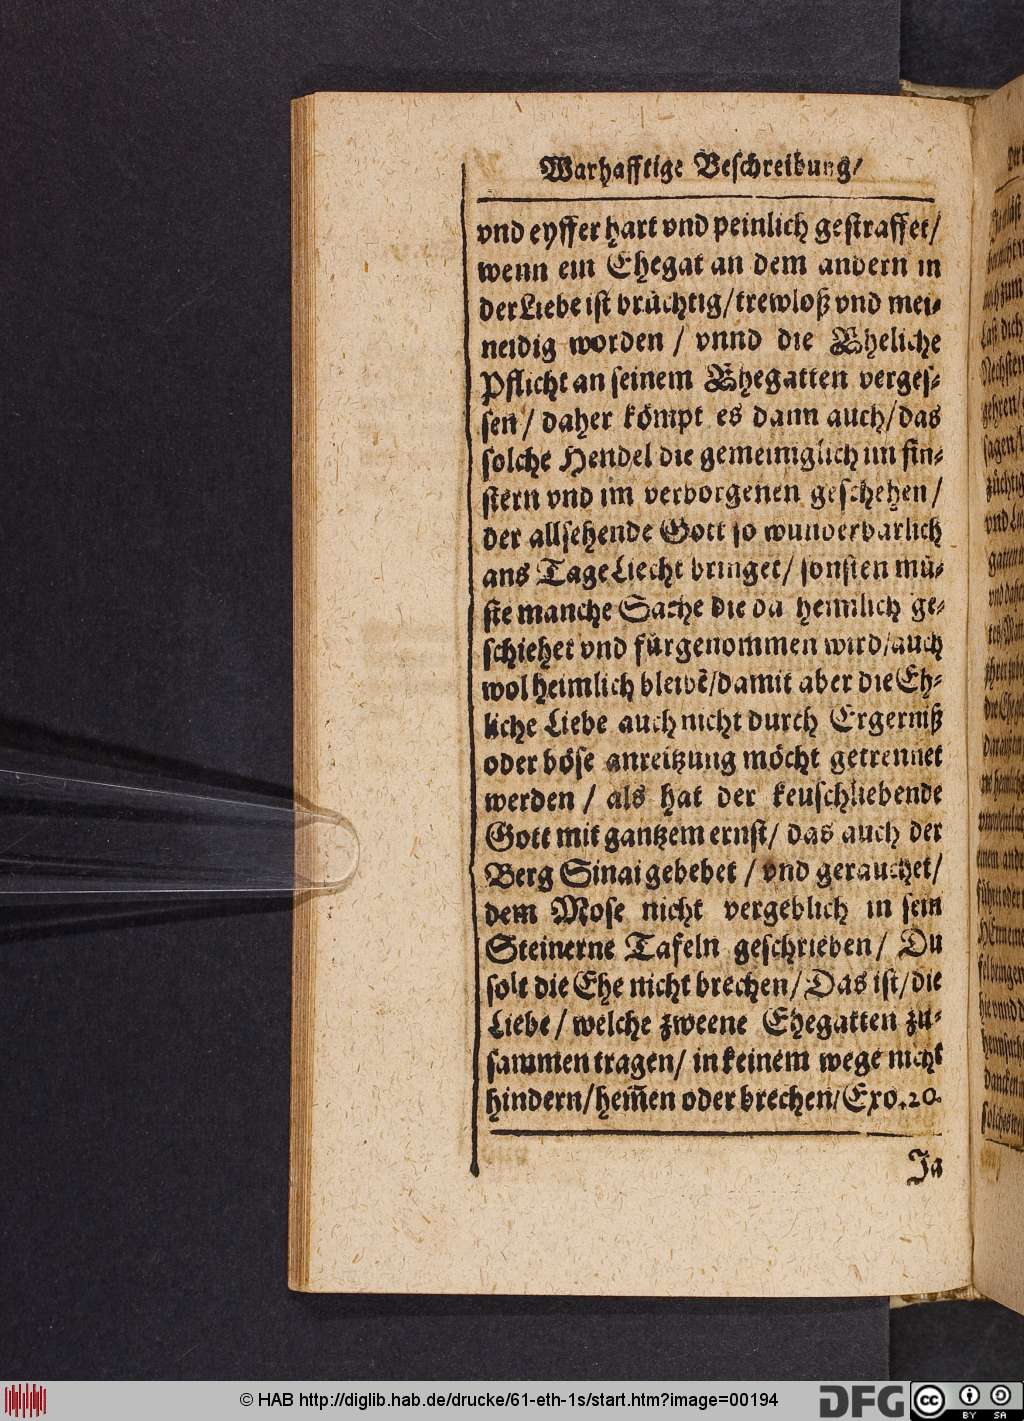 Warhafftige Beschreibung/
vnd eyffer hart vnd peinlich gestraffet/
wenn ein Ehegat an dem andern in
der Liebe ist brüchtig/trewloß vnd mei-
neidig worden / vnnd die Eheliche
Pflicht an seinem Ehegatten verges-
sen / daher kömpt es dann auch/das
solche Hendel die gemeiniglich im fin-
stern vnd im verborgenen geschehen /
der allsehende Gott so wunderbarlich
ans Tage Liecht bringet/ sonsten mü-
ste manche Sache die da heimlich ge-
schiehet vnd fürgenommen wird/auch
wol heimlich bleibē/damit aber die Eh-
liche Liebe auch nicht durch Ergerniß
oder böse anreitzung möcht getrennet
werden / als hat der keuschliebende
Gott mit gantzem ernst/ das auch der
Berg Sinai gebebet / vnd gerauchet/
dem Mose nicht vergeblich in sein
Steinerne Tafeln geschrieben/ Du
solt die Ehe nicht brechen/ Das ist/ die
Liebe / welche zweene Ehegatten zu-
sammen tragen/ in keinem wege nicht
hindern/hem̄en oder brechen/ Exo. 20.
Ja
© HAB http://diglib.hab.de/drucke/61-eth-1s/start.htm?image=00194
DFG
cc
BY SA